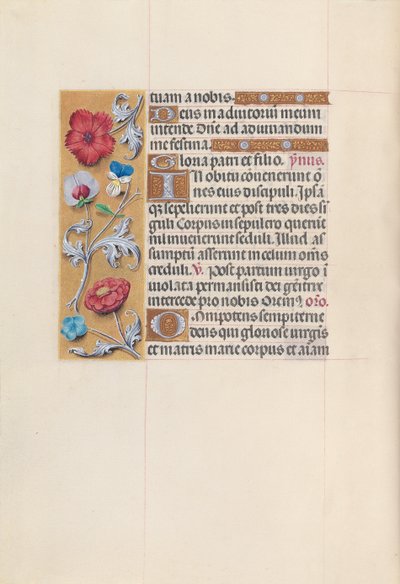 tuam a nobis.
Deus in adiutorium meum
intende Dñe ad adiuuandum
me festina.
Gloria patri et filio. ỹnus.
In obitu conuenerunt õ
nes eius discipuli. Ipsã
q̃ sepelierunt et post tres dies si
guli Corpus in sepulcro querũt
mĩ inuenerunt seduli. Illud as
sumptũ asserunt in celum om̃s
creduli. V̷. Post partum uirgo ĩ
uiolata permansisti dei genitrix
intercede pro nobis Orem⁹ oro.
Omnipotens sempiterne
deus qui gloriose uirgĩs
et matris marie corpus et aĩam